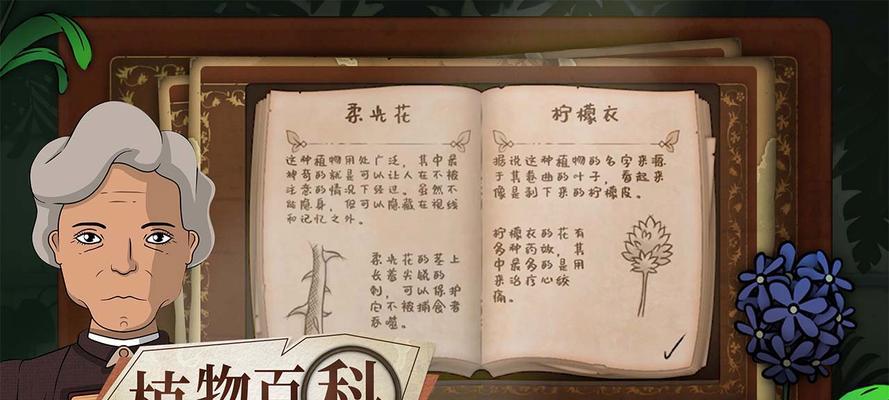 柔光花
这种植物用处广泛，其中最
神奇的就是可以让人在不被
注意的情况下经过。虽然不
能隐身，但可以隐藏在视线
和记忆之外。
柔光花的茎上
长着尖锐的
刺，可以保护
它不被捕食者
吞噬。
柠檬衣
据说这种植物的名字来源
于其卷曲的叶子，看起来
像是剥下来的柠檬皮。
柠檬衣的花有
多种药效，其
中最多的是用
来治疗心绞
痛。
植物百科